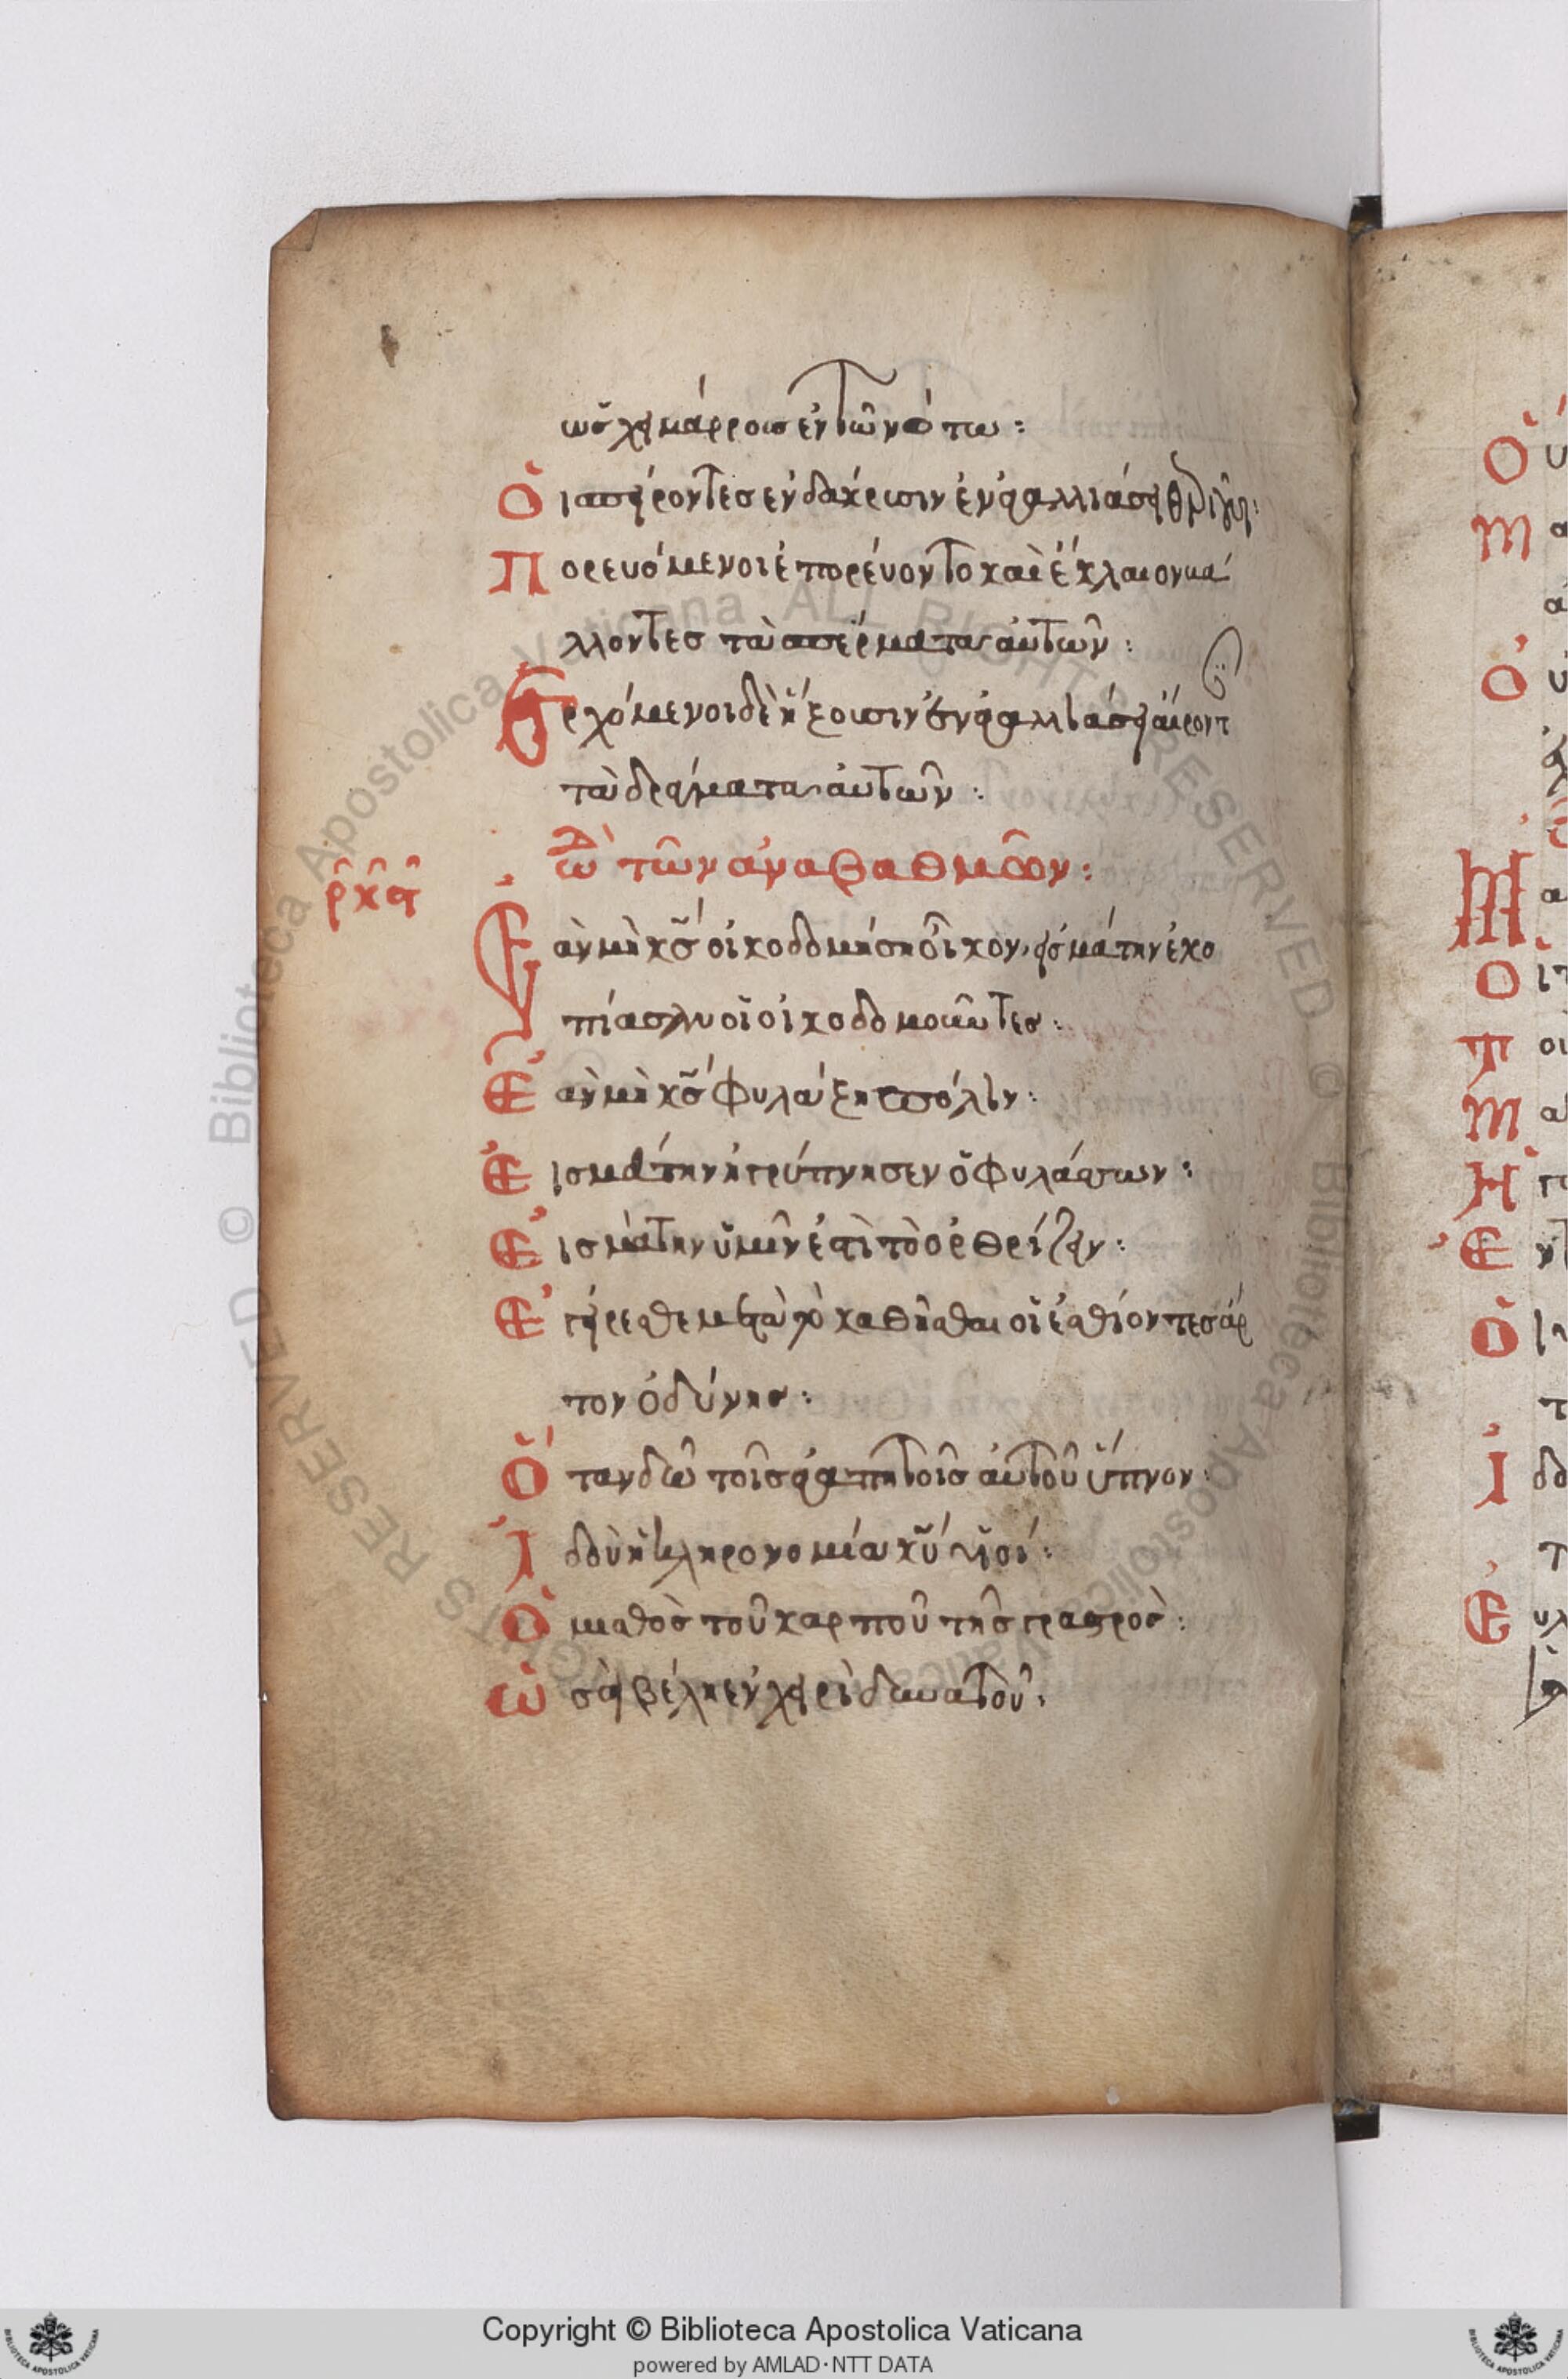 ὡς χειμάρρους ἐν τῶ νότω :
Ὁι σπείροντες ἐν δάκρυσιν ἐν ἀγαλλιάσει θεριοῦσι :
Πορευόμενοι ἐπορεύοντο καὶ ἔκλαιον βά
λλοντες τὰ σπέρματα αὐτῶν :
Ἐρχόμενοι δὲ ἥξουσιν ἐν ἀγαλλιάσει αἴροντες
τὰ δράγματα αὐτῶν :
ᾠδὴ τῶν ἀναβαθμῶν :
ρκϛ
Ἐὰν μὴ κς οἰκοδομήση οἶκον, εἰς μάτην ἐκο
πίασαν οἱ οἰκοδομοῦντες :
Ἐὰν μὴ κς φυλάξη πόλιν :
Εἰς μάτην ἠγρύπνησεν ὁ φυλάσσων :
Εἰς μάτην ὑμῖν ἐστὶ τὸ ὀρθρίζειν :
Ἐγείρεσθε μετὰ τὸ καθῆσθαι οἱ ἐσθίοντες ἄρ
τον ὀδύνης :
Ὅταν δῶ τοῖς ἀγαπητοῖς αὐτοῦ ὕπνον :
Ἰδοὺ ἡ κληρονομία κυ υἱοί :
Ὁ μισθὸς τοῦ καρποῦ τῆς γαστρός :
Ὡσεὶ βέλη ἐν χειρὶ δυνατοῦ :
Ο
Μ
Ο
Μ
Ο
Τ
Μ
Η
Ε
Ο
Ι
Ε
Copyright © Biblioteca Apostolica Vaticana
powered by AMLAD·NTT DATA